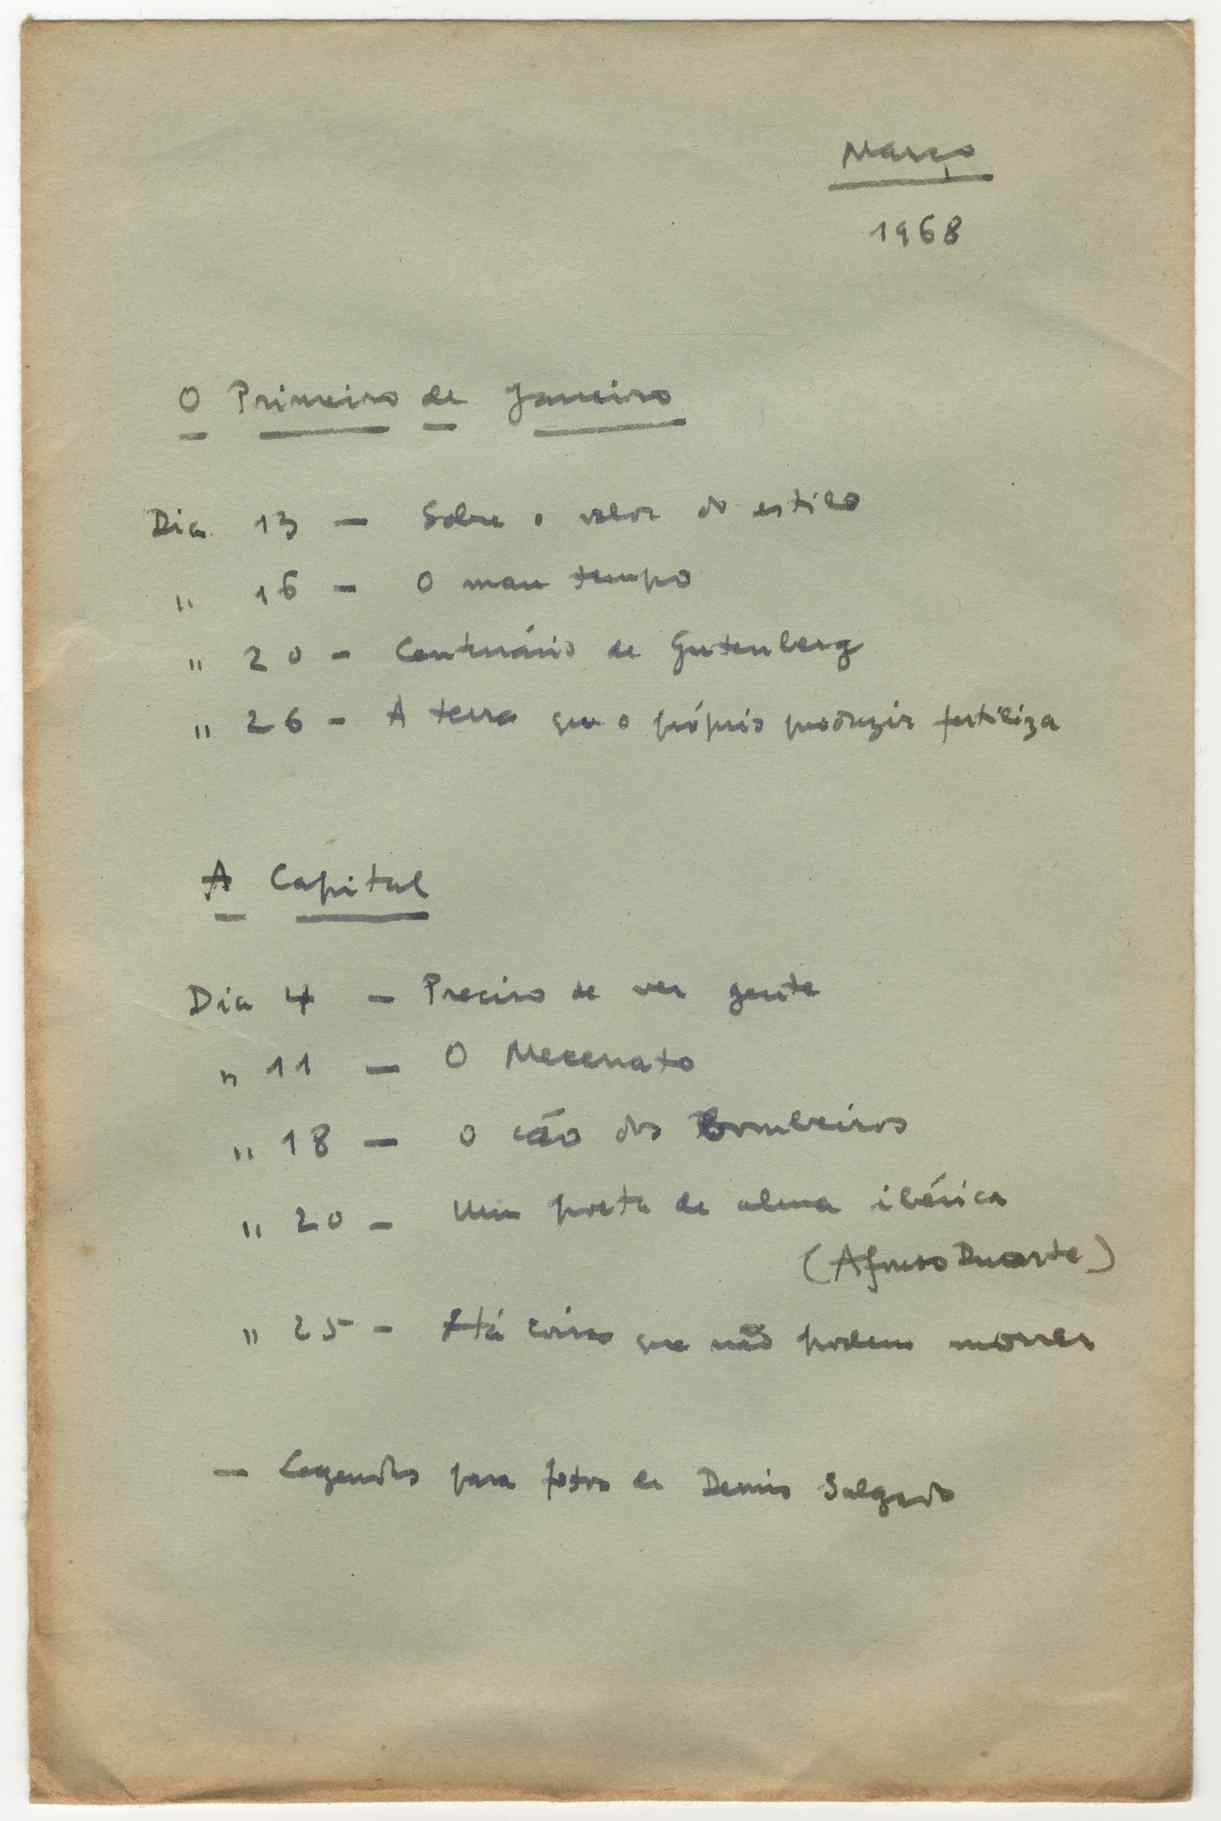 Março
1968
O Primeiro de Janeiro
Dia 13 — Sobre o valor do estilo
" 16 — O mau tempo
" 20 — Centenário de Gutenberg
" 26 — A terra que o próprio produzir fertiliza
A Capital
Dia 4 — Preciso de ver gente
" 11 — O Mecenato
" 18 — O cão dos Bombeiros
" 20 — Um poeta de alma ibérica
(Afonso Duarte)
" 25 — Há coisas que não podem morrer
— Legendas para fotos de Denis Salgado